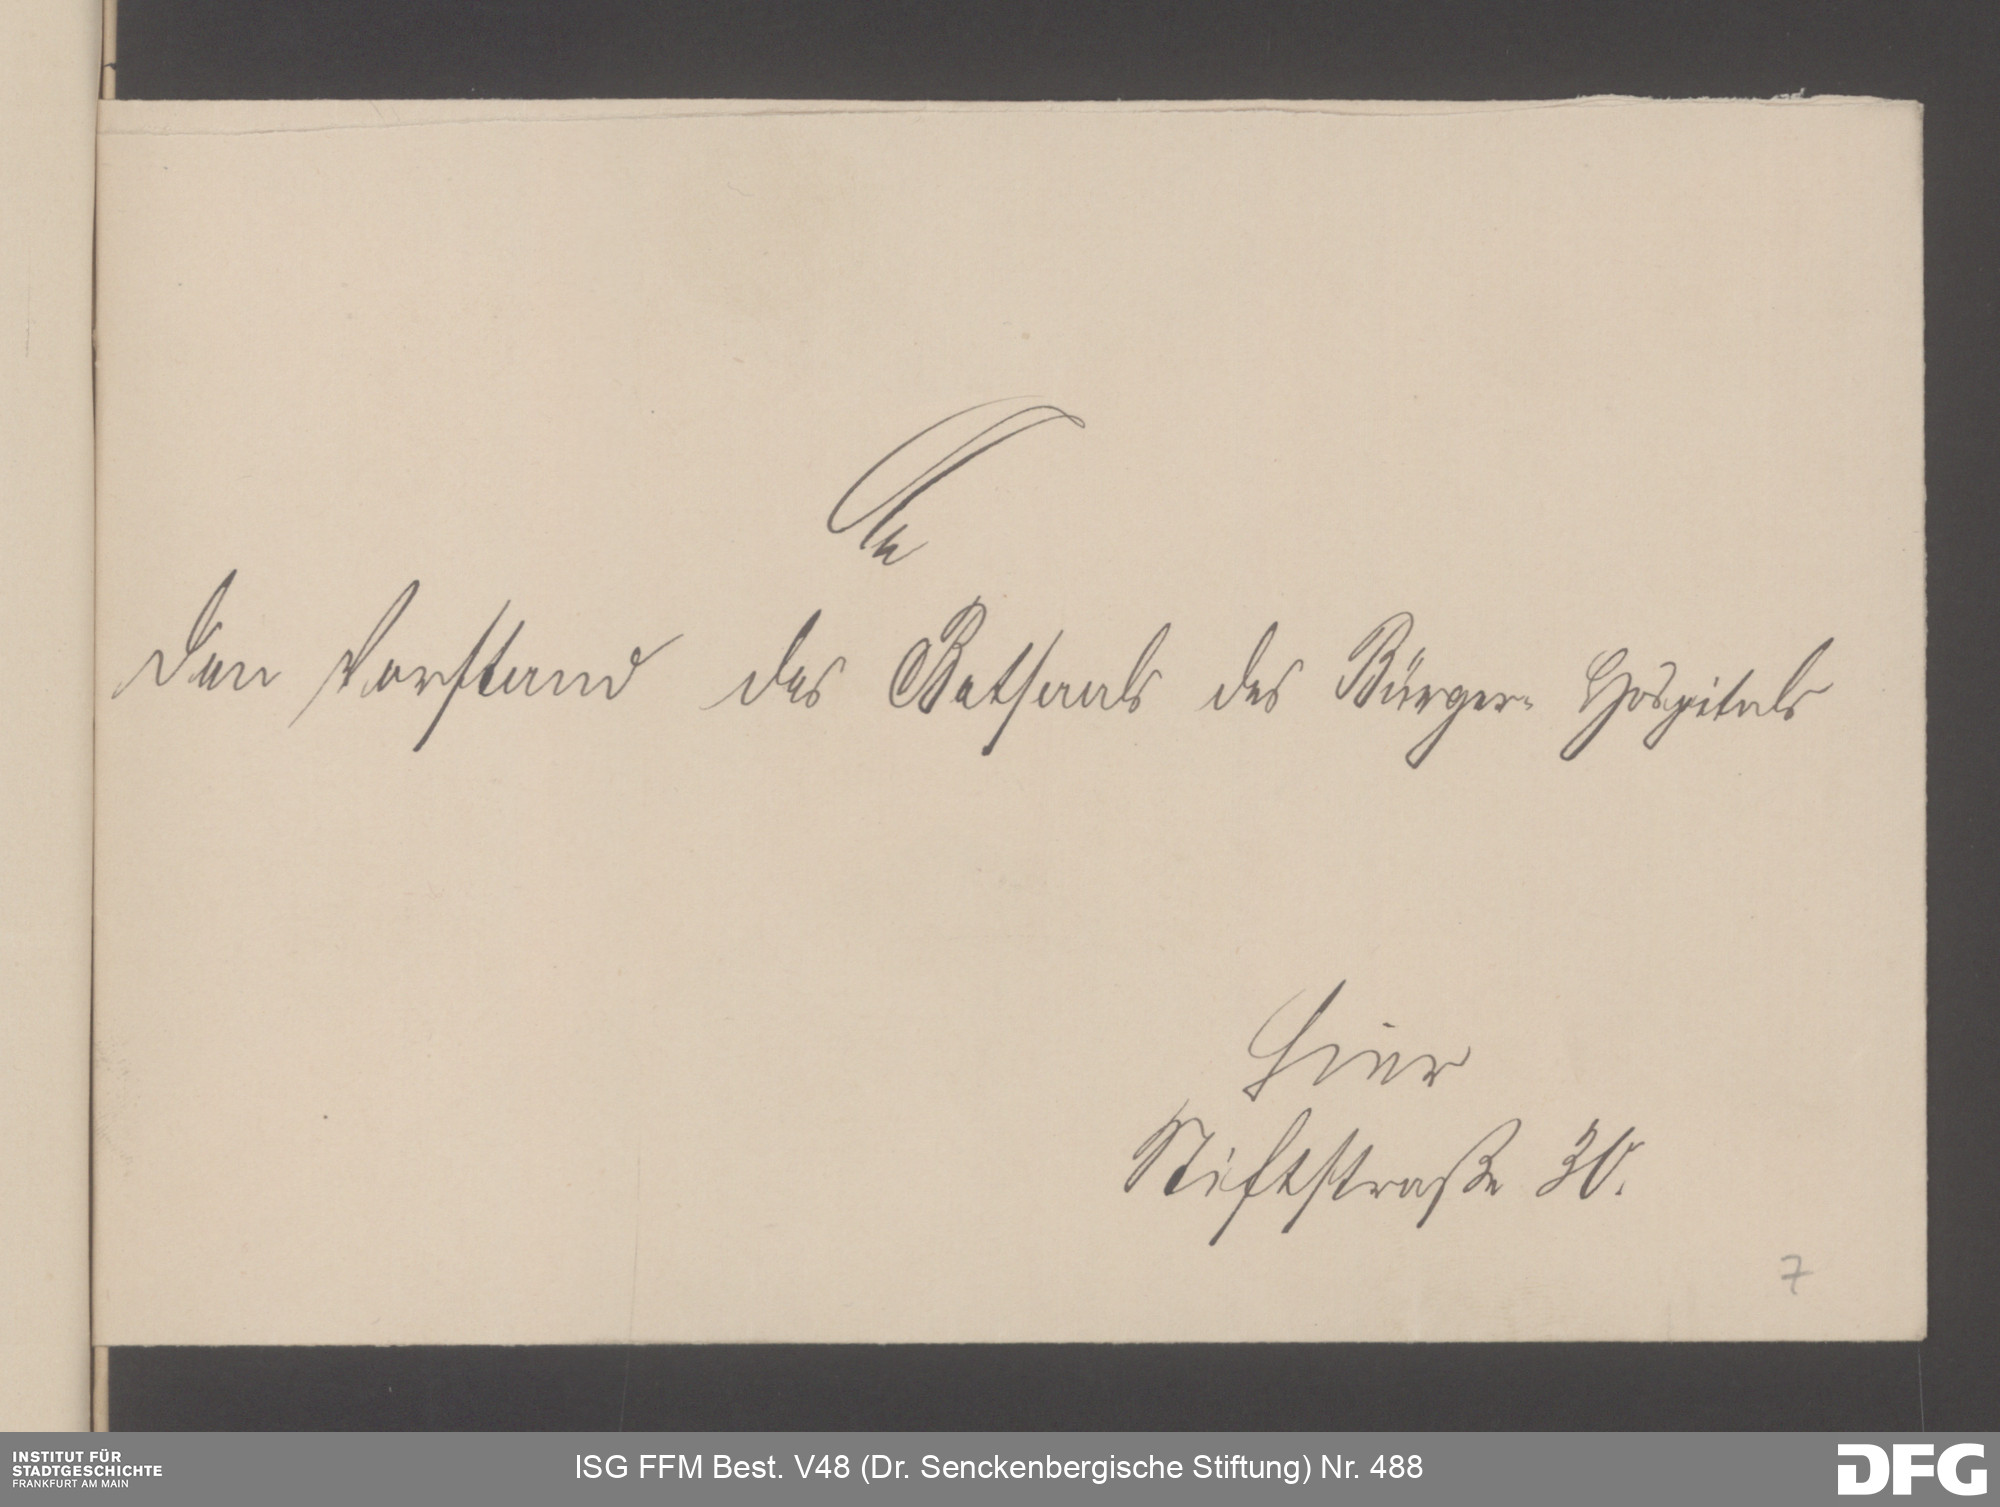 An
den Vorstand des Betsaals des Bürger- Hospitals
hier
Stiftstraße 30.
7
INSTITUT FÜR
STADTGESCHICHTE
FRANKFURT AM MAIN
ISG FFM Best. V48 (Dr. Senckenbergische Stiftung) Nr. 488
DFG